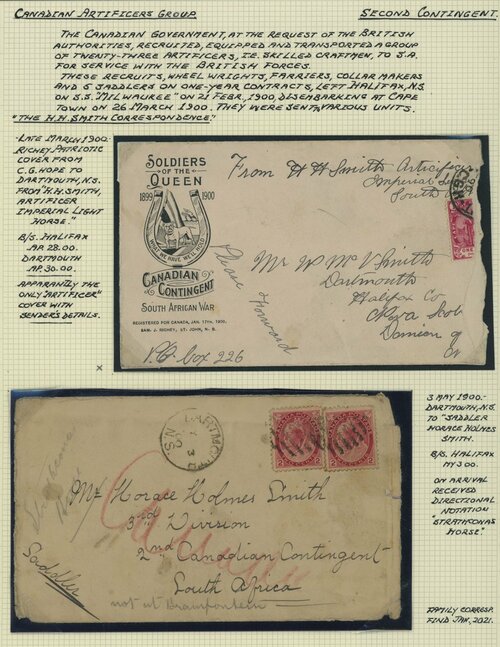 CANADIAN ARTIFICERS GROUP.
SECOND CONTINGENT.
THE CANADIAN GOVERNMENT, AT THE REQUEST OF THE BRITISH
AUTHORITIES, RECRUITED, EQUIPPED AND TRANSPORTED A GROUP
OF TWENTY-THREE ARTIFICERS, I.E. SKILLED CRAFTMEN, TO S.A.
FOR SERVICE WITH THE BRITISH FORCES.
THESE RECRUITS, WHEEL WRIGHTS, FARRIERS, COLLAR MAKERS
AND 5 SADDLERS ON ONE-YEAR CONTRACTS, LEFT HALIFAX, N.S
ON S.S. "MILWAUKEE" ON 21 FEBR, 1900, DISEMBARKING AT CAPE
TOWN ON 26 MARCH 1900. THEY WERE SENT VARIOUS UNITS.
"THE H.H. SMITH CORRESPONDENCE."
LATE MARCH 1900.
RICHEY PATRIOTIC
COVER FROM
C.G. HOPE TO
DARTMOUTH, N.S.
FROM "H.H. SMITH,
ARTIFICER
IMPERIAL LIGHT
HORSE."
B/S. HALIFAX
AP. 28.00.
DARTMOUTH
AP. 30.00.
APPARANTLY THE
ONLY "ARTIFICER"
COVER WITH
SENDER'S DETAILS.
SOLDIERS
OF THE
QUEEN
1899 1900
WHAT WE HAVE WE'LL HOLD
CANADIAN
CONTINGENT
SOUTH AFRICAN WAR
REGISTERED FOR CANADA, JAN. 17TH. 1900,
SAM. J. RICHEY, ST. JOHN, N. B.
P.O. box 226
From H H Smith Artificer
Imperial
South
Please Forward
Mr W M V Smith
Dartmouth
Halifax Co
Nova Scot
Domion of
ONE
DARTMOUTH
N.S.
MY 3
00
2 2
Mr Horace Holmes Smith
3rd Division
2nd Canadian Contingent
South Africa
Saddler
not at Braamfontein
3 MAY 1900.
DARTMOUTH, N.S
TO "SADDLER
HORACE HOLMES
SMITH.
B/S. HALIFAX
MY 3 00.
ON ARRIVAL
RECEIVED
DIRECTIONAL
NOTATION
"STRATHCONAS
HORSE"
FAMILY CORRESP.
FIND JAN, 2021.